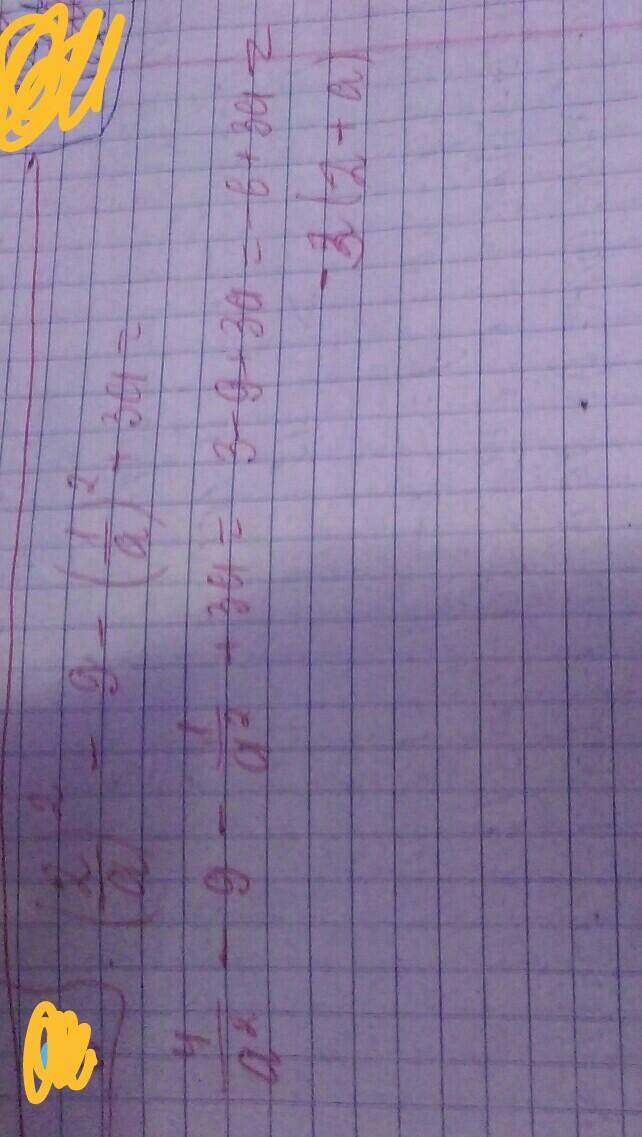 (2/a)² - 9 - (1/a)² + 3a =
4/a² - 9 - 1/a² + 3a = 3 - 9 + 3a = -6 + 3a =
-3(2+a)